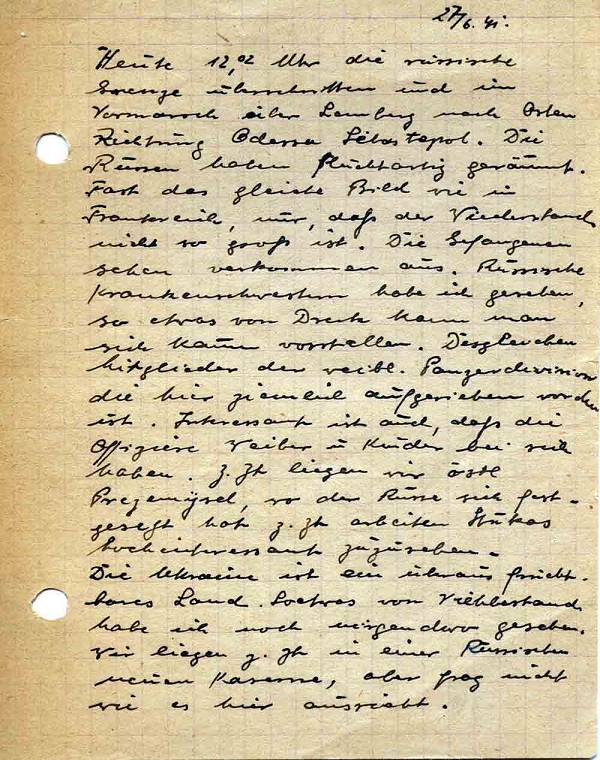 27/6.41.
Heute 12,02 Uhr die russische
Grenze überschritten und im
Vormarsch über Lemberg nach Osten
Richtung Odessa Sebastopol. Die
Russen haben fluchtartig geräumt.
Fast das gleiche Bild wie in
Frankreich, nur, daß der Wiederstand
nicht so groß ist. Die Gefangenen
sehen verkommen aus. Russische
Krankenschwestern habe ich gesehen,
so etwas von Dreck kann man
sich kaum vorstellen. Desgleichen
Mitglieder der weibl. Panzerdivision
die hier ziemlich aufgerieben worden
ist. Interessant ist auch, daß die
Offiziere Weiber u Kinder bei sich
haben. z. Zt liegen wir östl
Przemysel, wo der Russe sich fest-
gesetzt hat z. Zt arbeiten Stukas
hochinteressant zuzusehen.
Die Ukraine ist ein überaus frucht-
bares Land. Soetwas von Viehbestand
habe ich noch nirgendwo gesehen.
Wir liegen z. Zt in einer Russischen
neuen Kaserne, aber frag nicht
wie es hier aussieht.